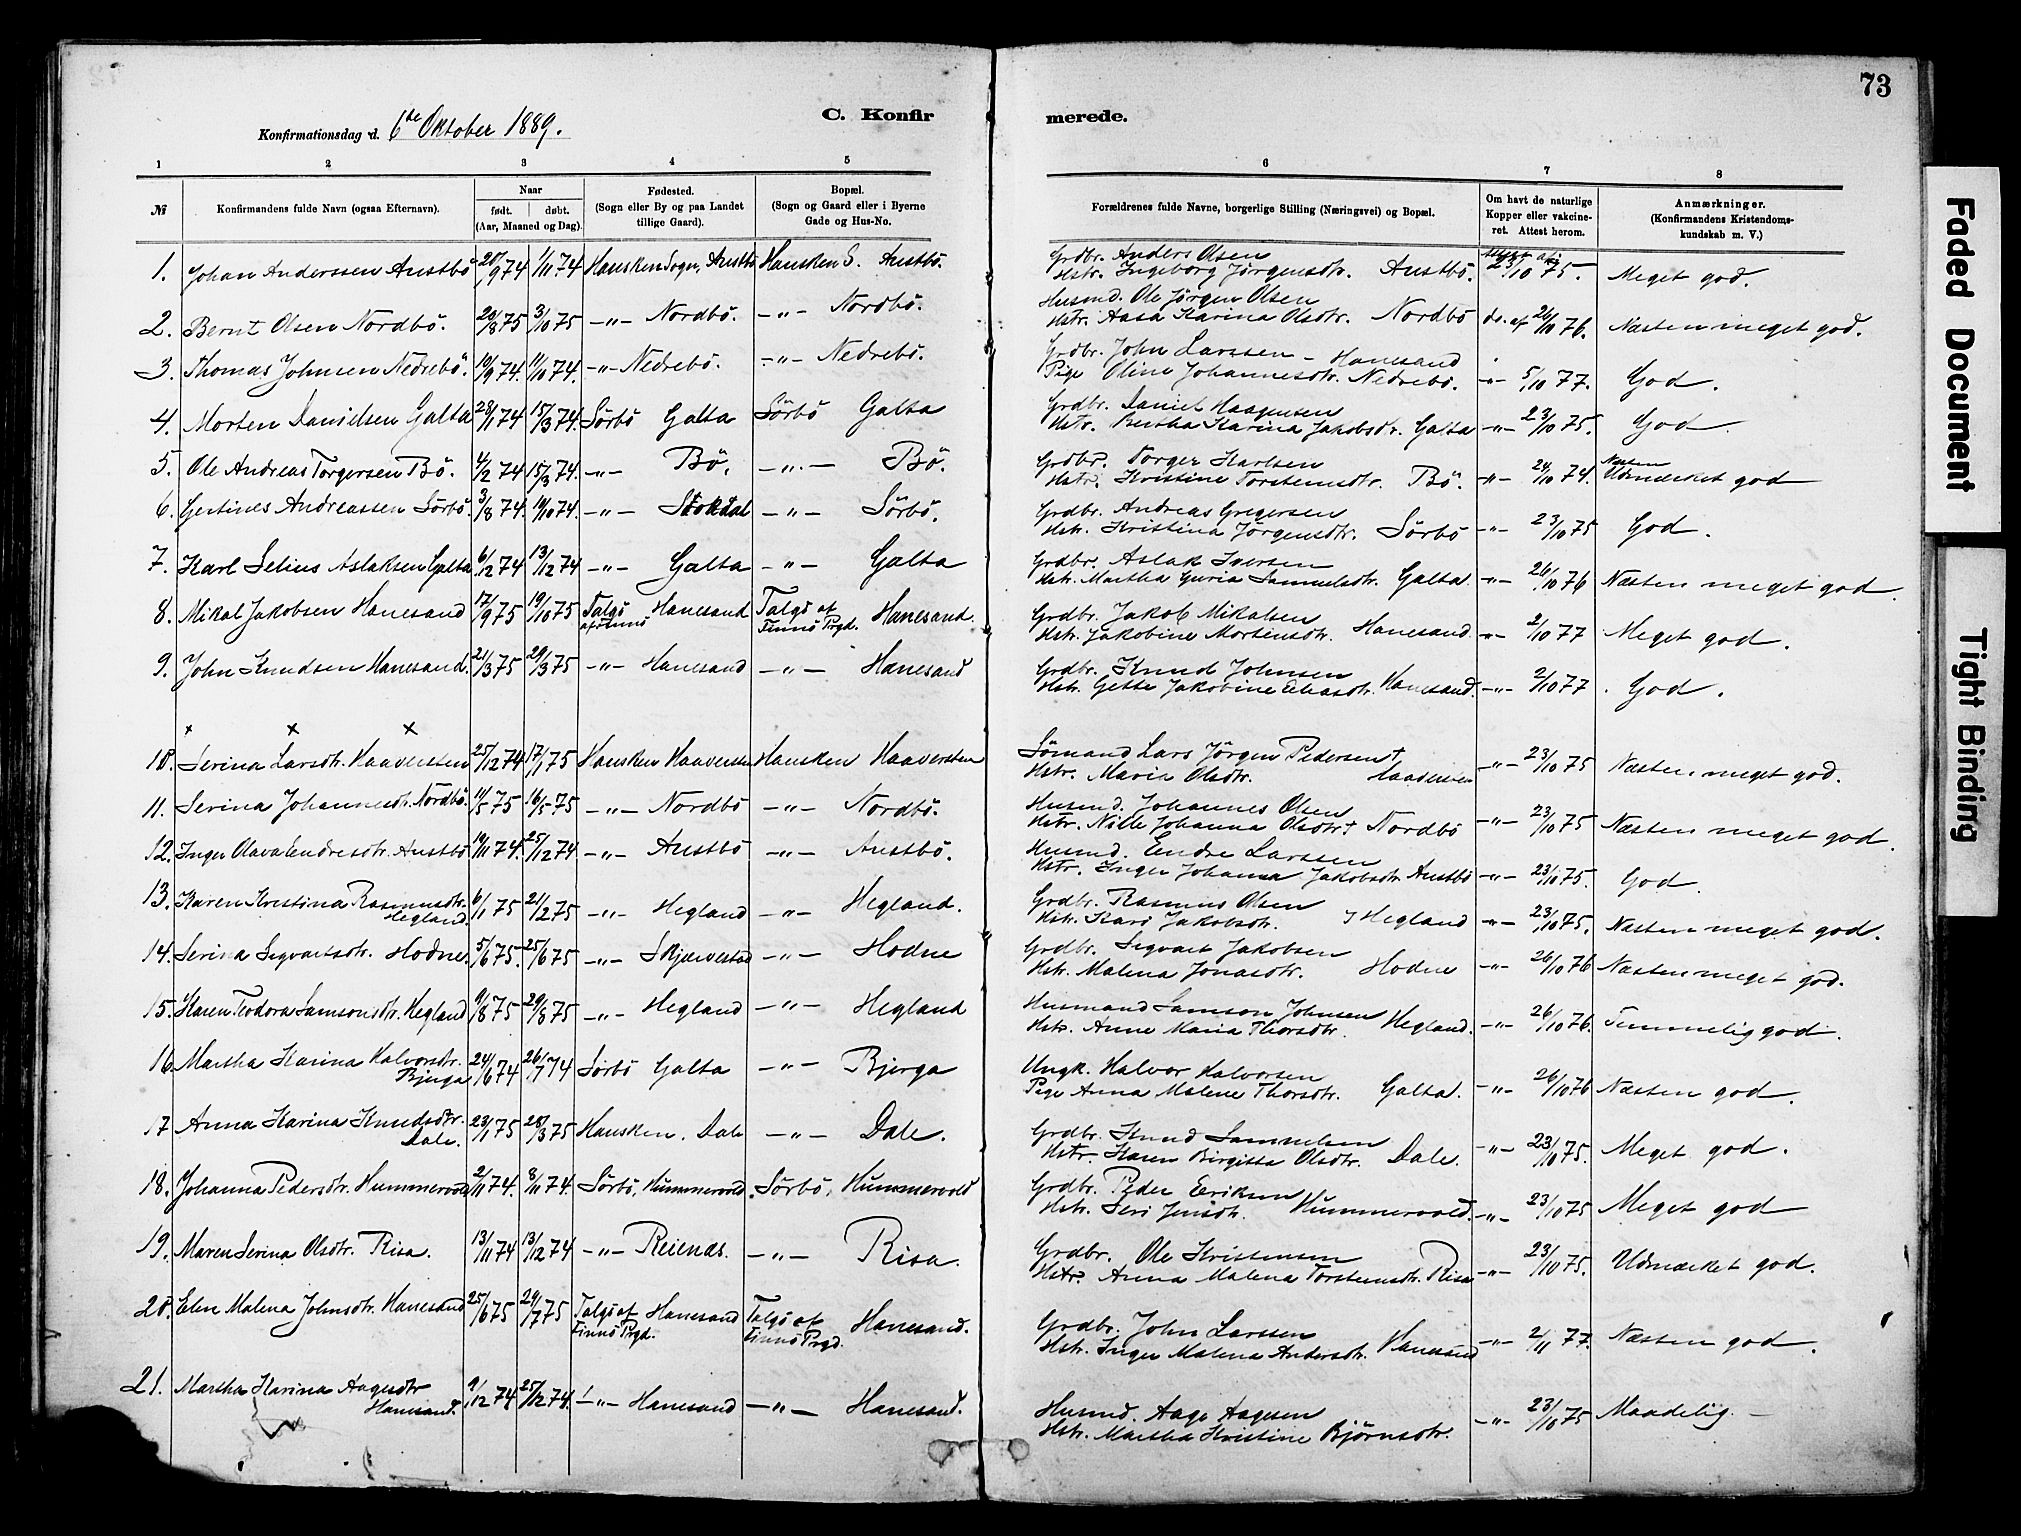 73
Konfirmationsdag d. 6te Oktober 1889.
C. Konfir
merede.
1 2 3 4 5 6 7 8
№ Konfirmandens fulde Navn (ogsaa Efternavn). Naar født. døbt. (Aar, Maaned og Dag). Fødested. (Sogn eller By og paa Landet tillige Gaard). Bopæl. (Sogn og Gaard eller i Byerne Gade og Hus-No. Forældrenes fulde Navne, borgerlige Stilling (Næringsvei) og Bopæl. Om havt de naturlige Kopper eller vakcineret. Attest herom. Anmærkninger. (Konfirmandens Kristendomskundskab m. V.)
1. Johan Anderssen Austbö 1/11 74 Hausken Sogn, Austbö Hausken S. Austbö. Grdbr. Anders Olsen
Hstr. Ingeborg Jörgensdtr. Austbö. 23/10 75. Meget god.
2. Bernt Olsen Nordbö. 20/8 75 3/10 75 -"- Nordbö. -"- Nordbö. Husmd. Ole Jörgen Olsen
Hstr. Aasa Karina Olsdtr. Nordbö do. af 26/10 76. Næsten meget god.
3. Thomas Johnsen Nedrebö. 10/9 74. 11/10 74. -"- Nedrebö. -"- Nedrebö. Grdbr. John Larssen - Hanesand
Pige Oline Johannesdtr. Nedrebö. -"- 5/10 77. God.
4. Morten Danielsen Galta 28/1 74 15/3 74. Sörbö Galta Sörbö Galta Grdbr. Daniel Haagensen
Hstr. Bertha Karina Jakobsdr. Galta -"- 23/10 75. God.
5. Ole Andreas Torgersen Bö. 4/2 74 15/3 74. -"- Bö. -"- Bö. Grdbr. Torger Karlsen
Hstr. Kristine Torstensdtr. Bö. -"- 24/10 74. Næsten Udmærket god
6. Gertines Andreassen Sörbö. 3/8 74. 19/10 74. -"- Stokdal -"- Sörbö. Grdbr. Andreas Gregersen
Hstr. Kristina Jörgensdtr. Sörbö -"- 23/10 75 God.
7. Karl Selius Aslaksen Galta 6/12 74 13/12 74 -"- Galta -"- Galta Grdbr. Aslak Iversen
Hstr. Martha Guria Samuelsdtr. Galta -"- 26/10 76 Næsten meget god.
8. Mikal Jakobsen Hanesand 17/9 75 19/10 75 Talgö af Finnö Hanesand Talgö af Finnö Prgd. Hanesand. Grdbr. Jakob Mikalsen
Hstr. Jakobine Mortensdtr. Hanesand -"- 2/10 77 Meget god.
9. John Knudsen Hanesand. 21/3 75 29/3 75 -"- Hanesand -"- Hanesand Grdbr. Knud Johnsen
Hstr. Jakobine Eliasdtr. Hanesand. -"- 2/10 77. God.
x x x
10. Serina Larsdtr. Haaversten 25/12 74 17/1 75 Hausken Haaversten Hausken Haaversten Sömand Lars Jörgen Pedersen †
Hstr. Maria Olsdtr. Haaversten -"- 23/10 75 Næsten meget god.
11. Serina Johannesdtr. Nordbö. 11/5 75 16/5 75 -"- Nordbö -"- Nordbö. Husmd. Johannes Olsen
Hstr. Nille Johanna Olsdtr † Nordbö -"- 23/10 75 Næsten meget god.
12. Inger Olava Endresdtr. Austbö 19/11 74. 25/12 74 -"- Austbö -"- Austbö. Husmd. Endre Larssen
Hstr. Inger Johanna Jakobsdtr Austbö -"- 23/10 75. God.
13. Karen Kristina Rasmusdtr. Hegland 6/1 75 21/2 75 -"- Hegland -"- Hegland. Grdbr. Rasmus Olsen
Hstr. Kari Jakobsdtr. Hegland -"- 23/10 75. Næsten meget god.
14. Serina Sigvartsdtr. Hodne. 5/6 75. 25/6 75 -"- Skjærvestad -"- Hodne Grdbr. Sigvart Jakobsen
Hstr. Malena Jonasdtr. Hodne -"- 26/10 76 Næsten meget god.
15. Karen Teodora Samsonsdtr. Hegland 9/8 75 29/8 75 -"- Hegland -"- Hegland Husmand Samson Johnsen
Hstr. Anne Maria Thorsdtr. Hegland. -"- 26/10 76. Temmelig god.
16. Martha Karina Halvorsdtr. Bjerga 24/6 74 26/7 74 Sörbö Galta -"- Bjerga Ungk. Halvor Halvorsen
Pige Anna Malene Thorsdtr. Galta. -"- 26/10 76 Næsten god.
17 Anna Karina Knudsdtr. Dale. 23/1 75 28/3 75 Hausken. Dale -"- Dale. Grdbr. Knud Samuelsen
Hstr. Karen Birgitta Olsdtr. Dale. -"- 23/10 75. Meget god.
18. Johanna Pedersdtr. Hummervold 2/11 74. 8/11 74. Sörbö, Hummervold. Sörbö, Hummervold Grdbr. Peder Eriksen
Hstr. Seri Jensdtr. Hummervold. -"- 23/10 75 Meget god
19. Maren Serina Olsdtr. Risa. 13/11 74 13/12 74 -"- Reienæs. -"- Risa. Grdbr. Ole Kristensen
Hstr. Anna Malena Torstensdtr. Risa -"- 23/10 75. Udmærket god.
20. Elen Malena Johnsdtr. Hanesand 25/6 75 29/7 75 Talgö af Finnö Prgd. Hanesand Talgö af Finnö Prgd. Hanesand. Grdbr. John Larssen
Hstr. Inger Malena Andersdtr. Hanesand -"- 2/11 77. Næsten god.
21. Martha Karina Aagesdtr Hanesand. 9/12 74 25/12 74. -"- Hanesand -"- Hanesand. Husmd. Aage Aagesen
Hstr. Martha Kristine Björnsdtr. -"- 23/10 75 Maadelig.
Faded Document
Tight Binding